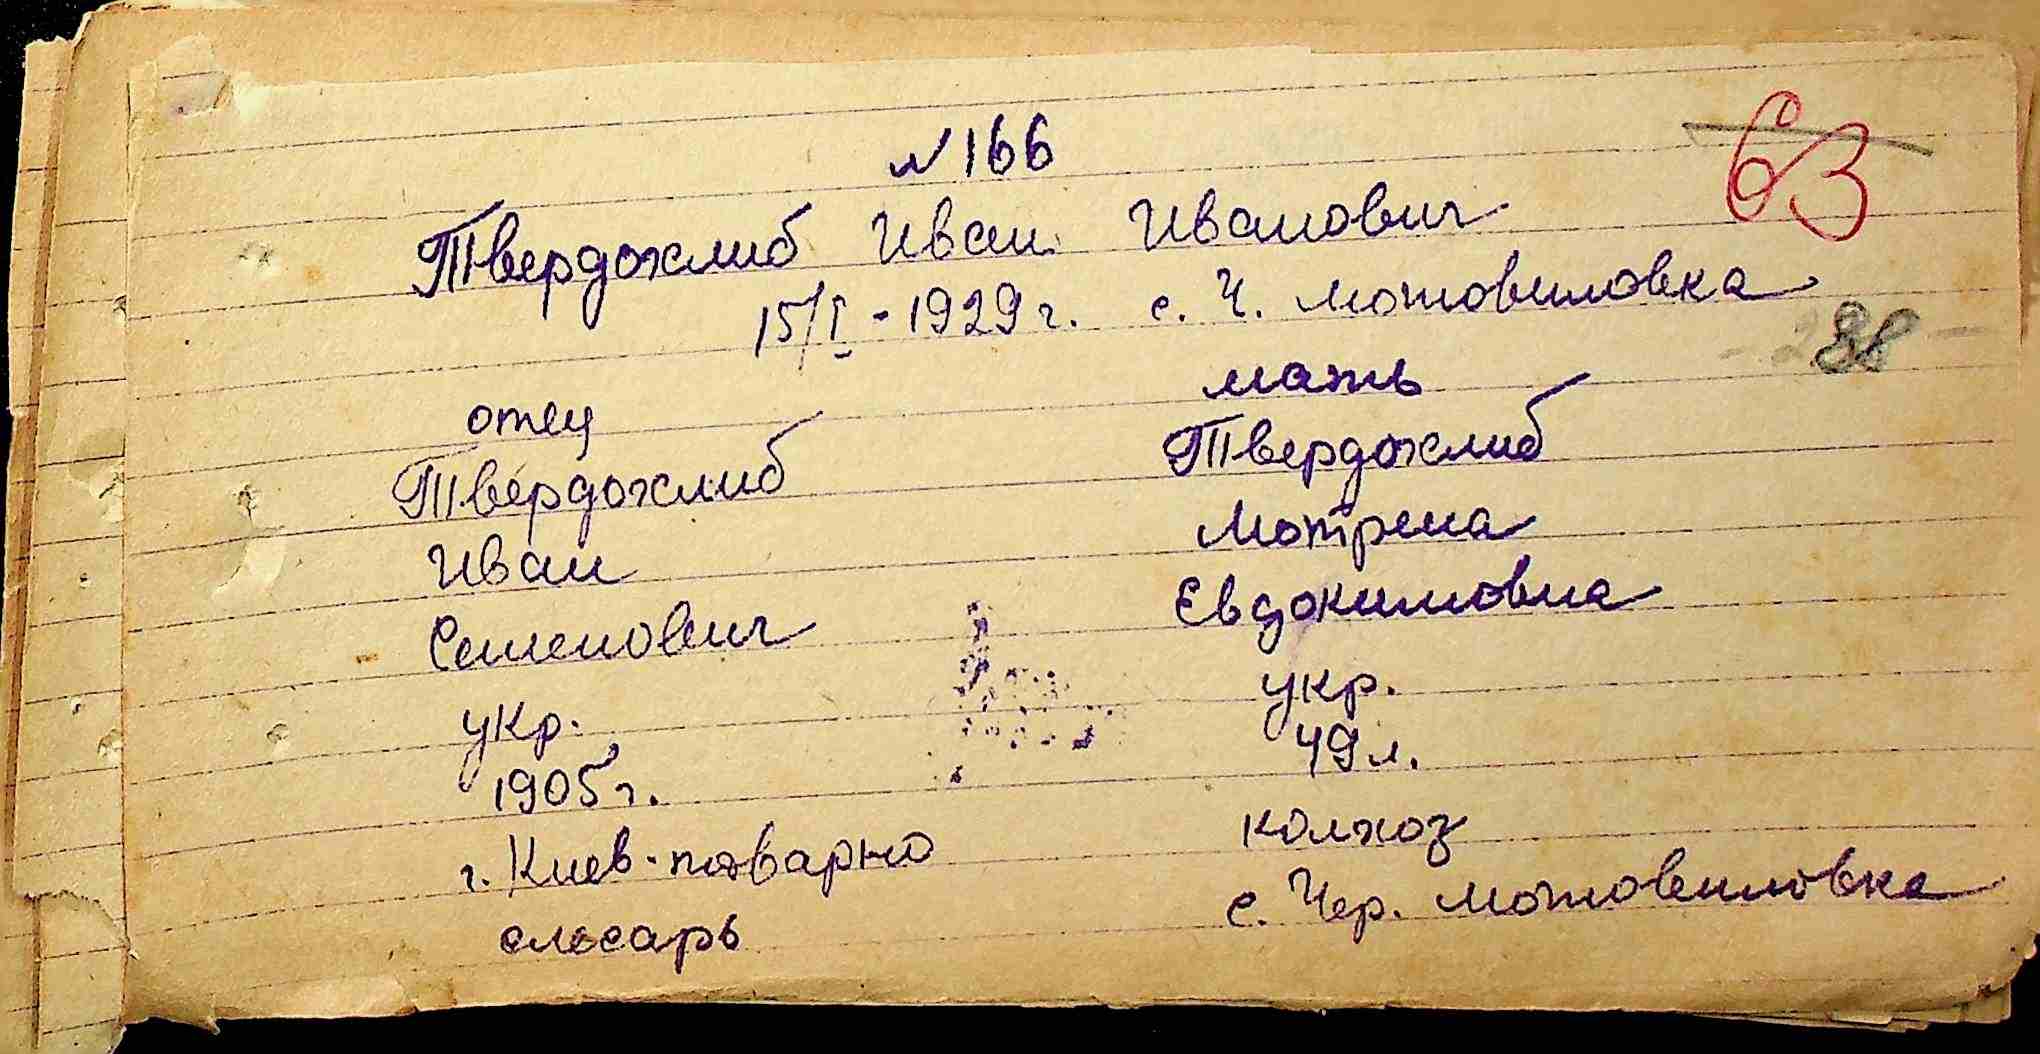 № 166
63
Твердохлиб Иван Иванович
15/I - 1929 г. с. Ч. Мотовиловка
отец
Твердохлиб
Иван
Семенович
укр.
1905 г.
г. Киев-товарно
слесарь
мать
Твердохлиб
Мотрена
Евдокимовна
укр.
49 л.
колхоз
с. Чер. Мотовиловка